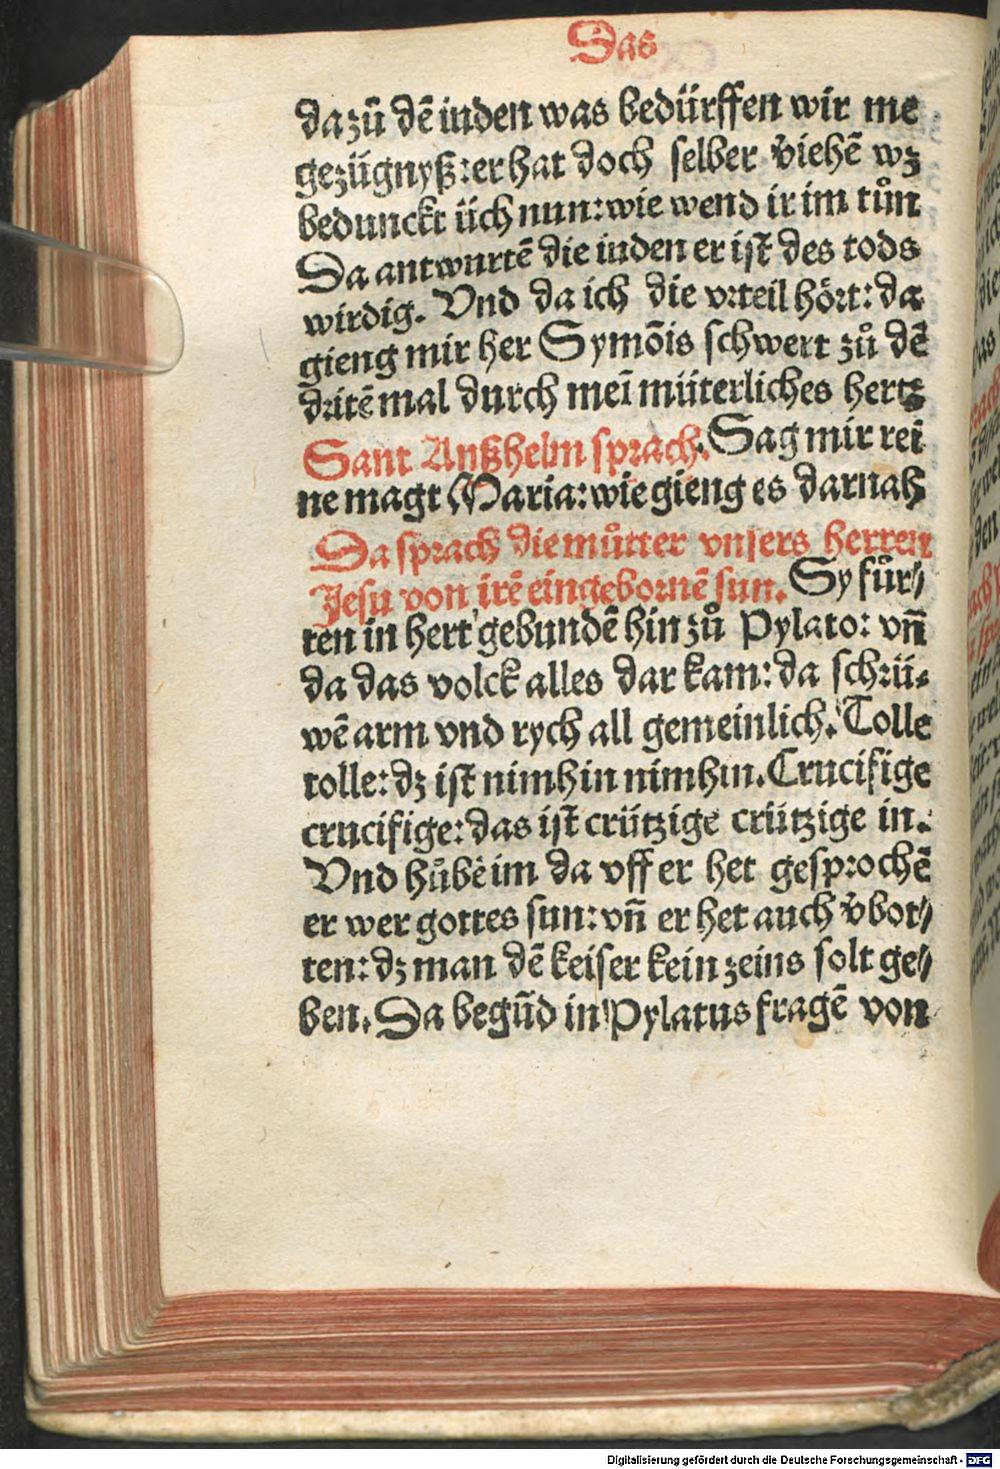 Das
da zũ dẽ iuden was bedürffen wir me
gezügnyß: er hat doch selber v̈iehẽ wz
bedunckt üch nun: wie wend ir im tůn
Da antwurtẽ die iuden er ist des tods
wirdig. Vnd da ich die vrteil hört: da
gieng mir her Symõis schwert zů dẽ
dritẽ mal durch meĩ müterliches hertz
Sant Anßhelm sprach. Sag mir reĩ
ne magt Maria: wie gieng es darnah
Da sprach die můtter vnsers herren
Jesu von irẽ eingebornẽ sun. Sy fůr⸗
ten in hert gebundẽ hin zů Pylato: vñ
da das volck alles dar kam: da schrü⸗
wẽ arm vnd rych all gemeinlich. Tolle
tolle: dz ist nim hin nim hin. Crucifige
crucifige: das ist crützige crützige in.
Vnd hůbẽ im da vff er het gesprochẽ
er wer gottes sun: vñ er het auch v̈bot⸗
ten: dz man dẽ keiser kein zeins solt ge⸗
ben. Da begũd in Pylatus fragẽ von
Digitalisierung gefördert durch die Deutsche Forschungsgemeinschaft - DFG